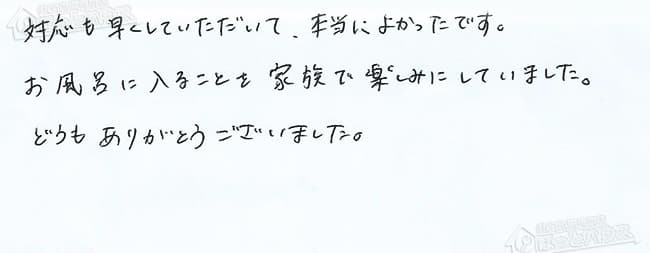 対応も早くしていただいて、本当によかったです。
お風呂に入ることを家族で楽しみにしていました。
どうもありがとうございました。